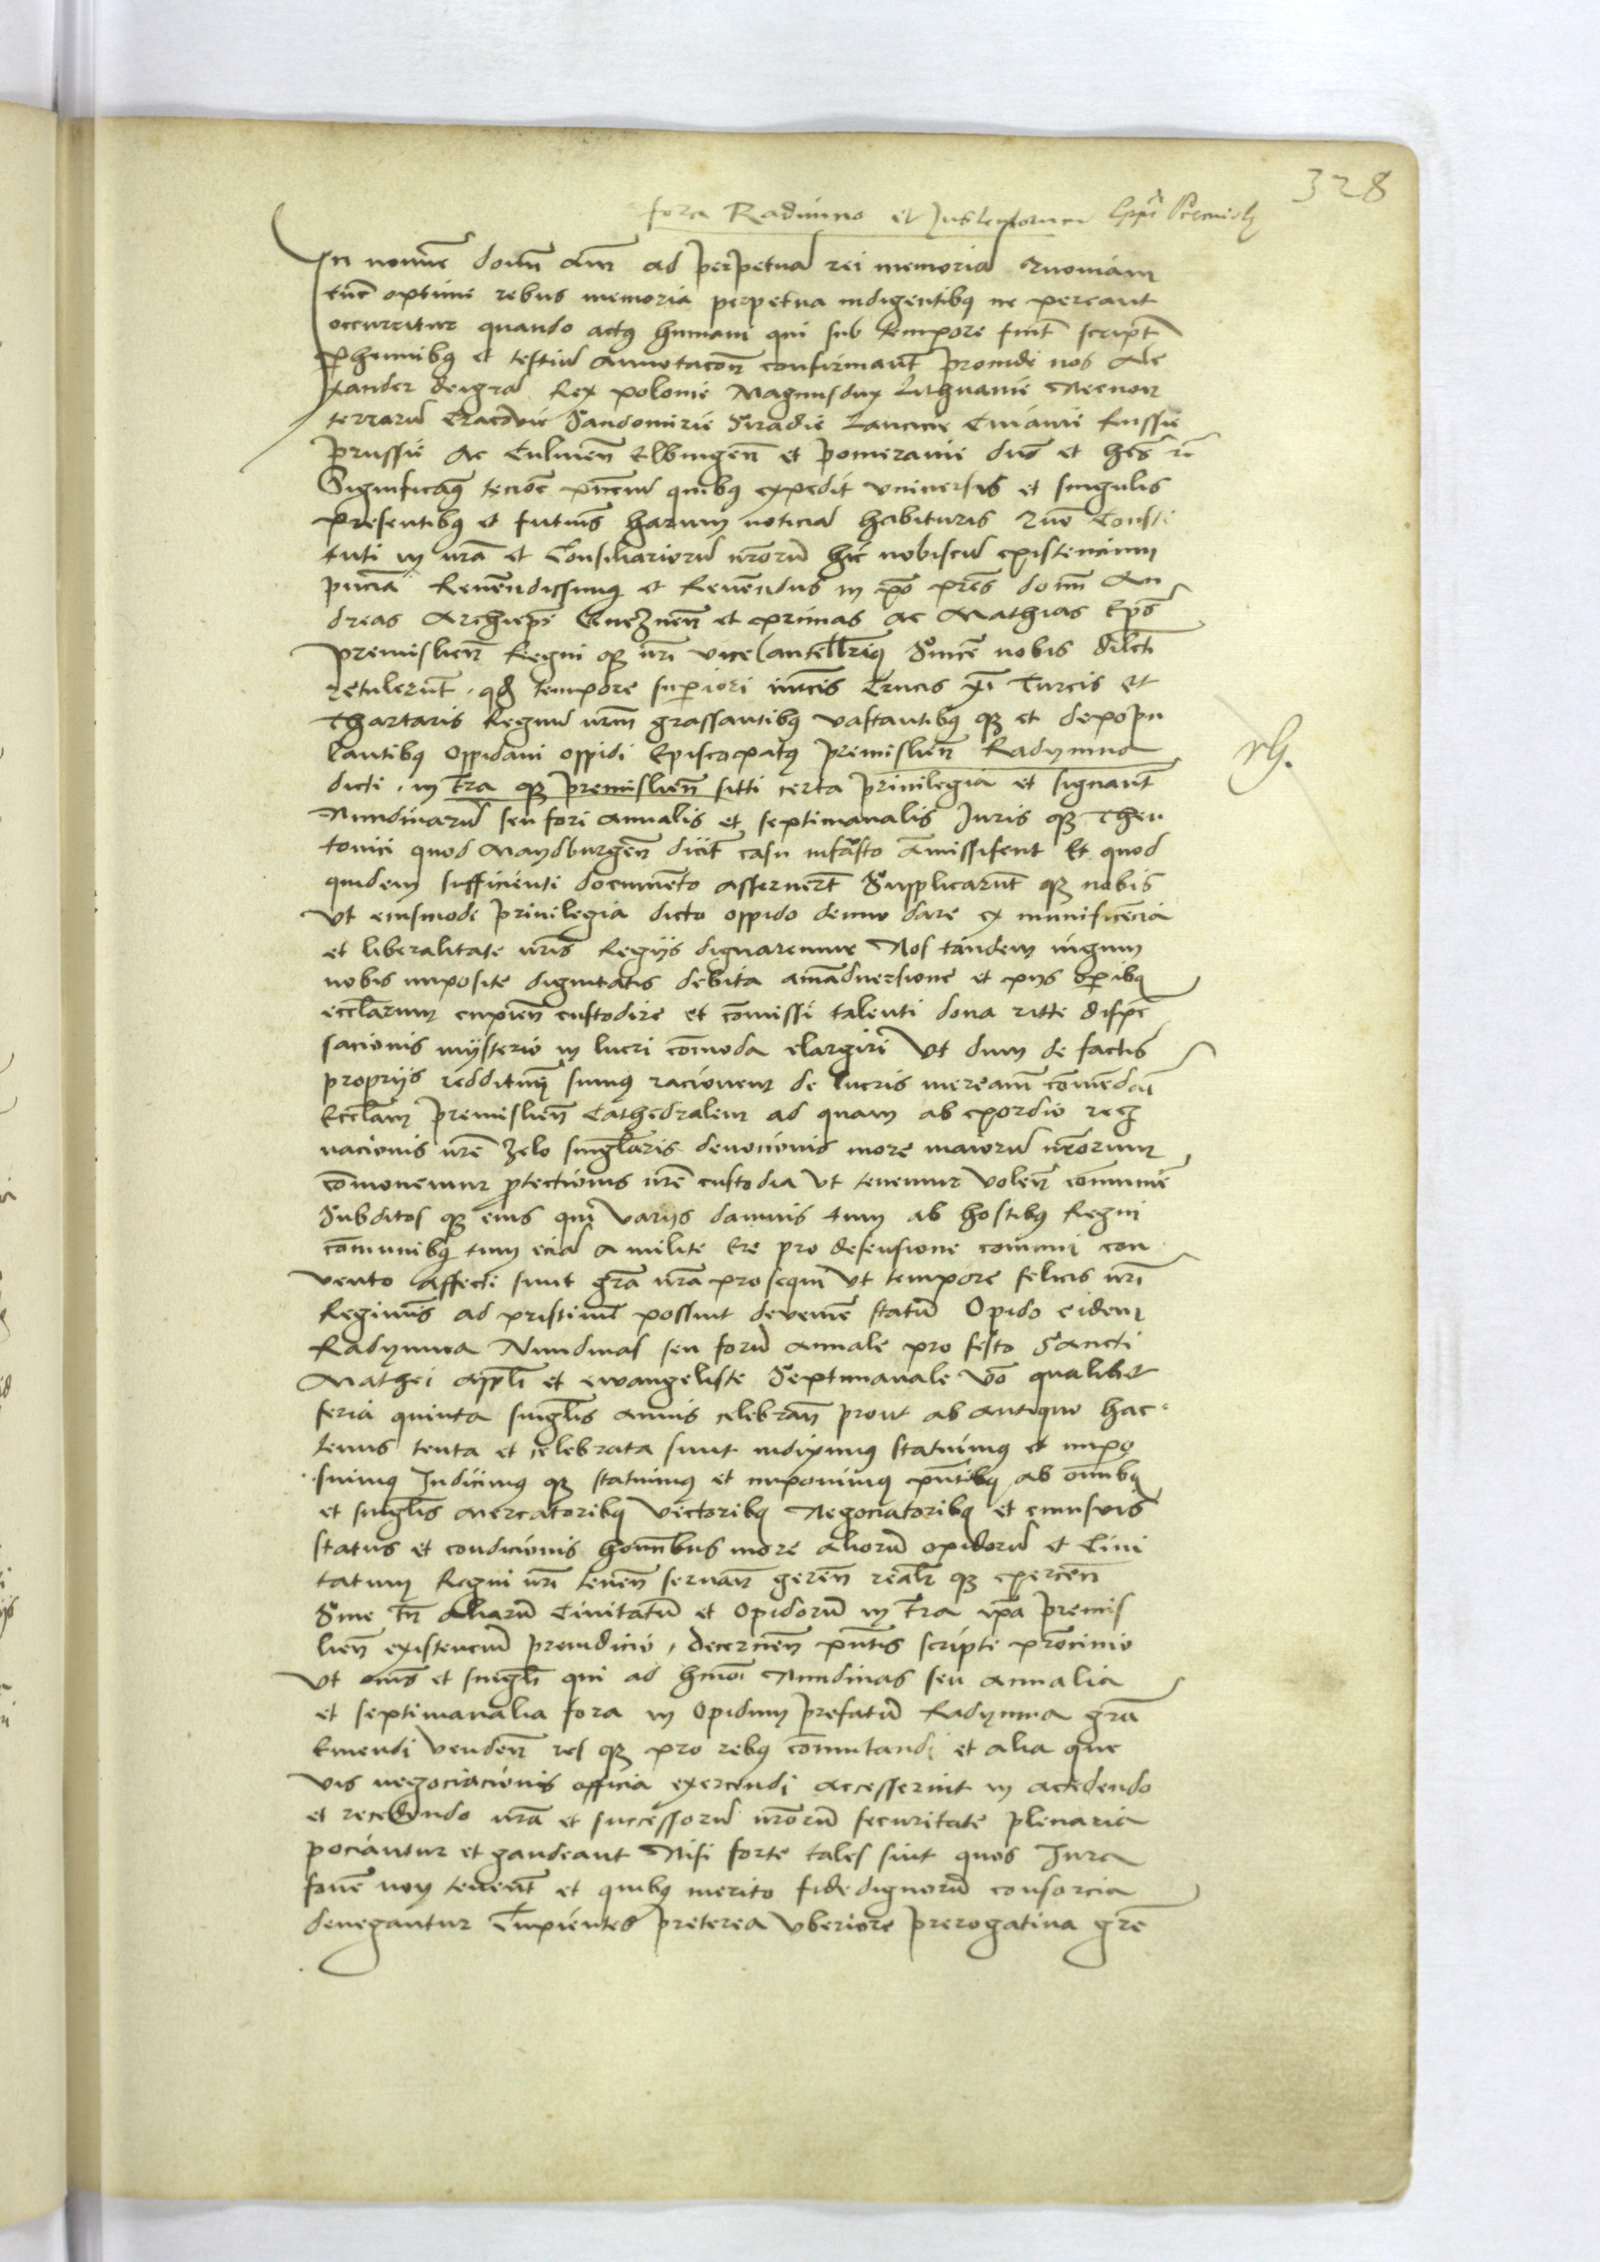 328
fora Radimno et Jus teutonicum Eppi Premisl
In nomine domi am ad perpetua rei memoria Quoniam
tunc optime rebus memoria perpetua indigentibus ne pereant
occurritur quando actus humani qui sub tempore fiunt script
perhennibus et testium annotacon confirmant Proinde nos Ale
xander dei gra Rex polonie Magnus dux Lithuanie Necnon
terrarum Cracovie Sandomirie Siradie Lancicie Cuiavie Russie
prussie ac Culmen Elbingen et pomeranie dns et heres rc
Significamus tenore pncium quibus expedit universis et singulis
presentibus et futuris harum noticia habituris Quo Consti
tuti in nra et Consiliariorum nrorum hic nobiscum existencium
pncia Reverendissimus et Reverendus in xpo pres domi An
dreas Archiepi Gneznen et primas ac Mathias Eps
premislien Regni q nri vice Cancellriq Sincere nobis dilcti
retulerunt qd tempore superiori inimicis Crucis xpi Turcis et
Thartaris Regnum nrm grassantibus vastantibus q et depopu
lantibus oppidani oppidi Episcopatus premislien Radymna
dicti in tra q premislien sitti certa privilegia et signant
Nundinarum seu fori annalis et septimanalis Juris q Theu
tonici quod Maydburgen dicit casu infasto amississent Et quod
quidem sufficienti documento asseruert Supplicarunt q nobis
Ut eiusmodi privilegia dicto oppido denuo dare ex munificencia
et liberalitate nris Regiis dignaremur Nos tandem iugum
nobis imposite dignitatis debita amadversione et piis operibus
ecclarum cupien custodire et comissi talenti dona ritte dispen
sacionis mysterio in lucri comoda elargiri Ut dum de factis
propriis reddituri sumus racionem de lucris mereamr comendari
Ecclam premislien Cathedralem ad quam ab exordio reg
nacionis nre zelo singlaris devocionis more maiorum nrorum
comovemur protectionis nre custodia ut tenemur volen communire
Subditos q eius qui variis damnis tum ab hostibus Regni
comunibus tum ecia a milite Ere pro defensione comuni con
vento affecti sunt gra nra prosequi Ut tempore felicis nri
Regiminis ad pristinum possint devenire statum Opido eidem
Radymna Nundinas seu forum annale pro festo Sancti
Mathei appli et ewangeliste Septimanale vo qualibet
feria quinta singlis annis celebran prout ab antiquo hac
tenus tenta et celebrata sunt indiximus statuimus et impo
suimus Indicimus q statuimus et imponimus pntibus ab omnibus
et singlis Mercatoribus Vectoribus Negociatoribus et cuiusvis
status et condicionis hominbus more aliorum opidorum et Civi
tatum Regni nri tenen servan geren realr q exercen
Sine tn aliarum Civitatum et Opidorum in tra ipa premis
lien existencium preiudicio decernen pntis scripti procinio
Ut omes et singli qui ad hmoi Nundinas seu annalia
et septimanalia fora in Opidum prefatum Radymna gra
Emendi venden res q pro rebus comutandi et alia que
vis negociacionis officia exercendi accesserint in accedendo
et recedendo nra et successorum nrorum securitate plenaria
pociantur et gaudeant Nisi forte tales sint quos Jura
fovere non tenent et quibus merito fide dignorum consorcia
denegantur Cupientes preterea uberiore prerogativa gre